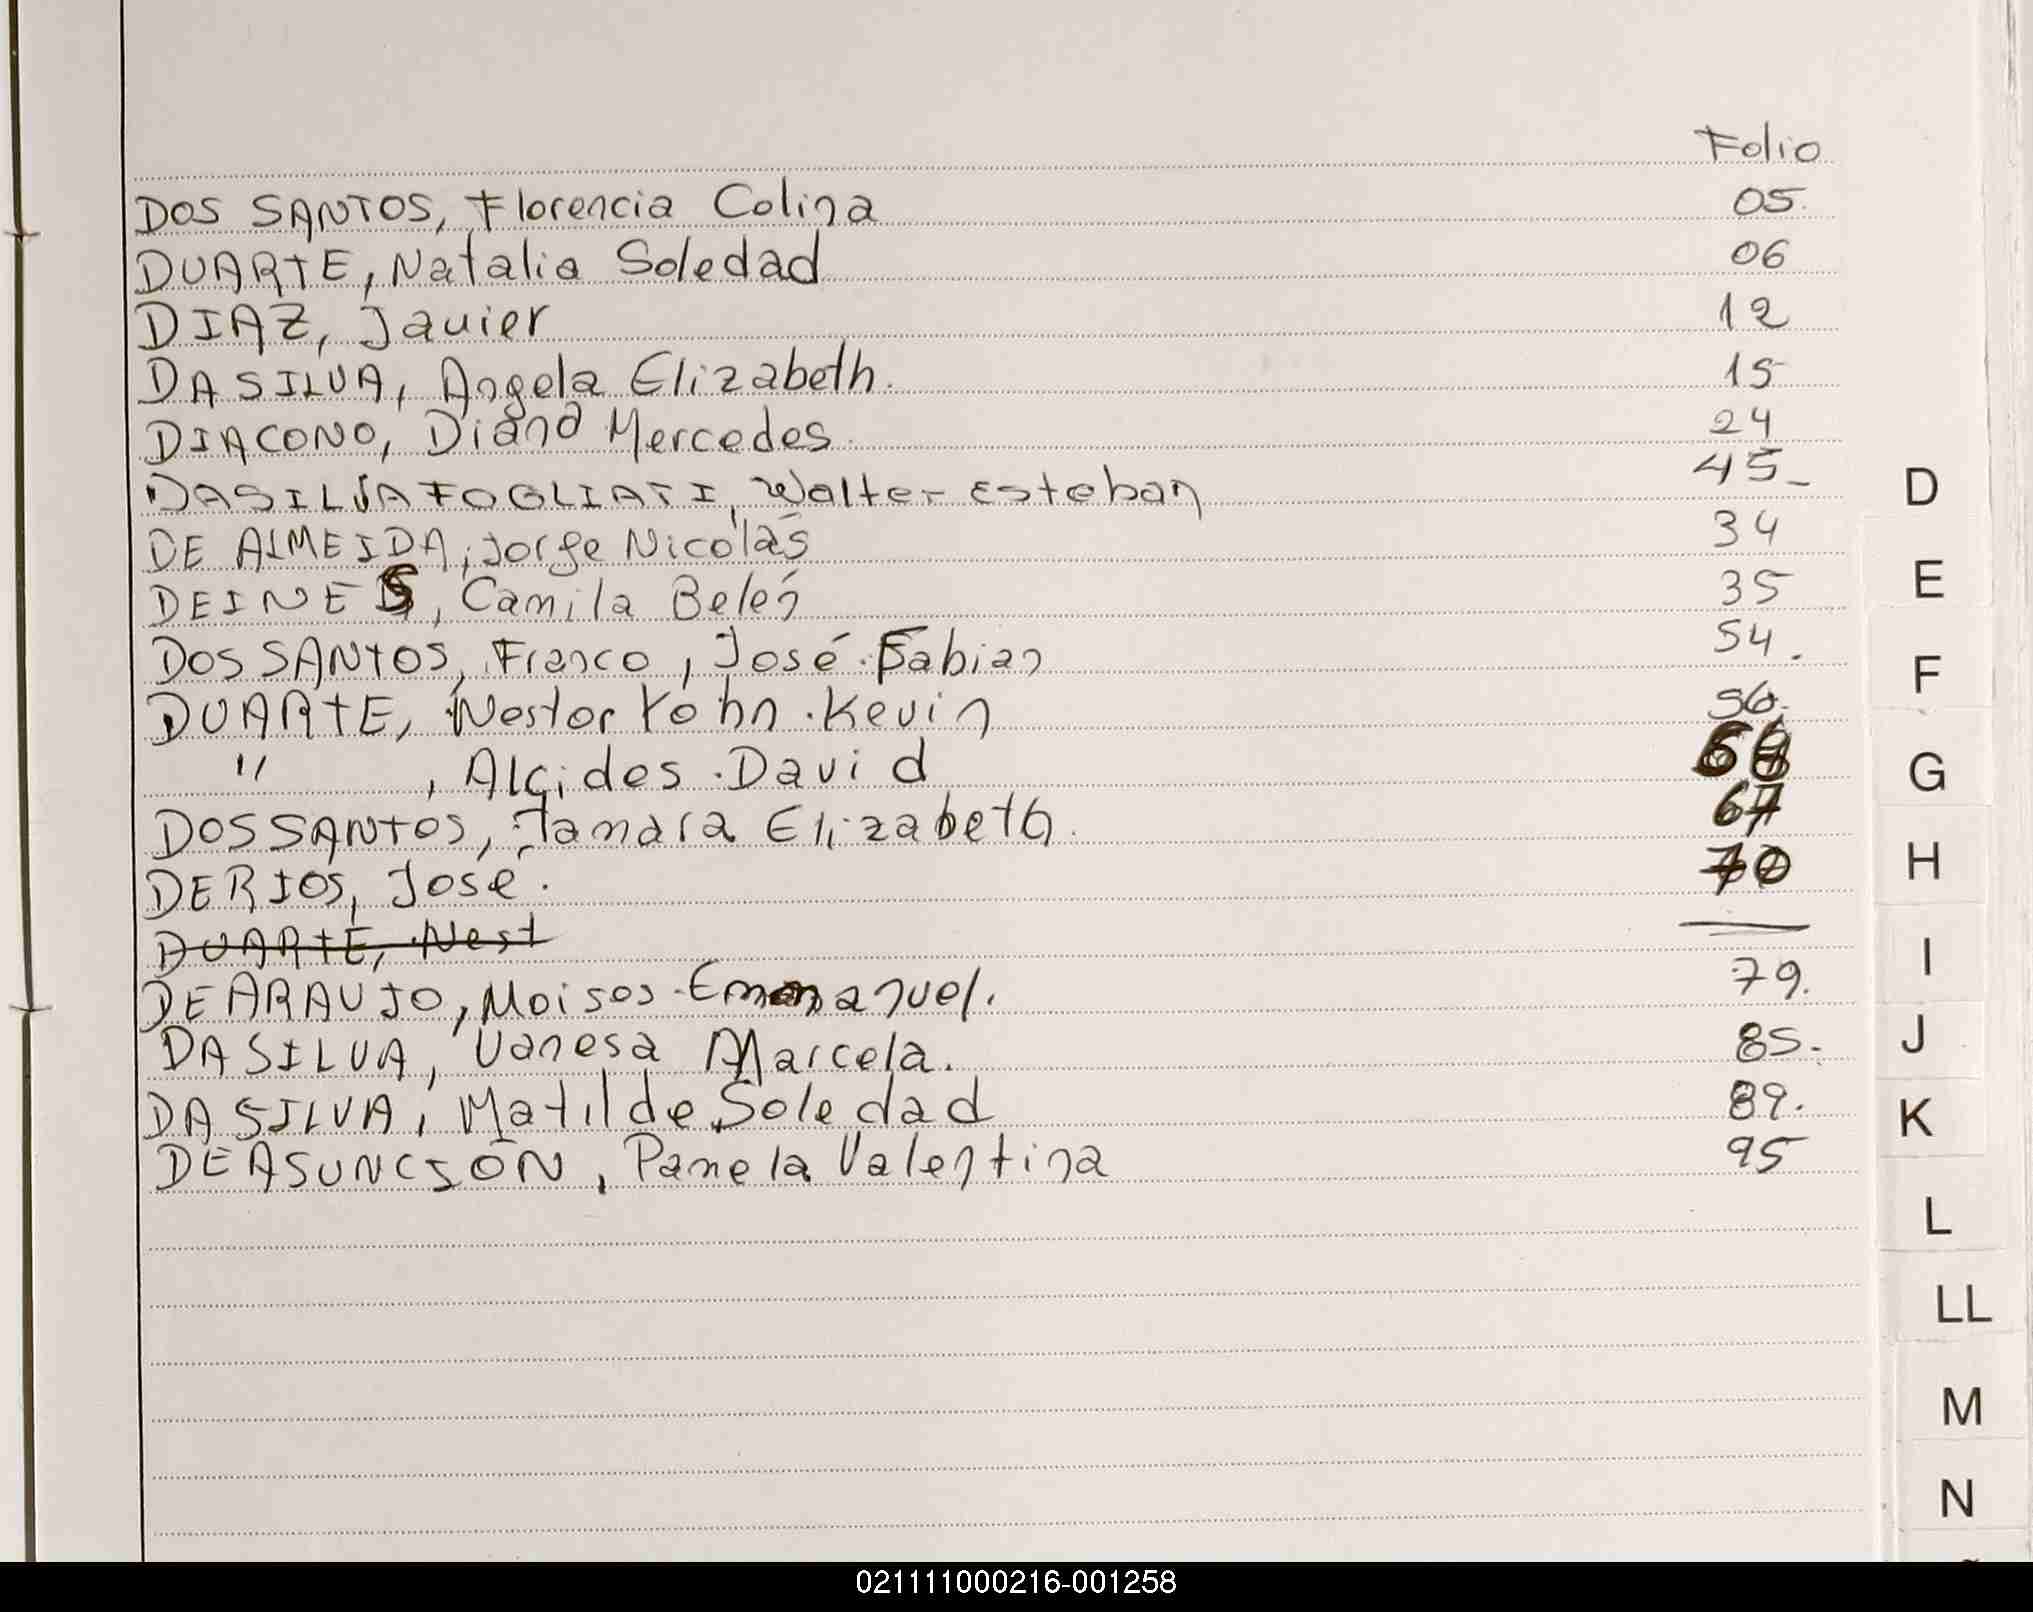 Folio
DOS SANTOS, Florencia Colina 05.
DUARTE, Natalia Soledad 06
DIAZ, Javier 12
DA SILVA, Angela Elizabeth. 15
DIACONO, Diana Mercedes. 24
DASILVA FOGLIATI, Walter Esteban 45-
DE ALMEIDA, Jorge Nicolás 34
DEINES, Camila Belén 35
DOS SANTOS, Franco, José Fabian 54.
DUARTE, Nestor Yohn Kevin 56.
" , Alcides David
DOS SANTOS, Tamara Elizabeth. 67
DERIOS, José. 70
DUARTE, Nest —
DE ARAUJO, Moises Emanuel. 79.
DA SILVA, Vanesa Marcela. 85.
DA SILVA, Matilde Soledad 89.
DEASUNCIÓN, Pamela Valentina 95
D
E
F
G
H
I
J
K
L
LL
M
N
021111000216-001258